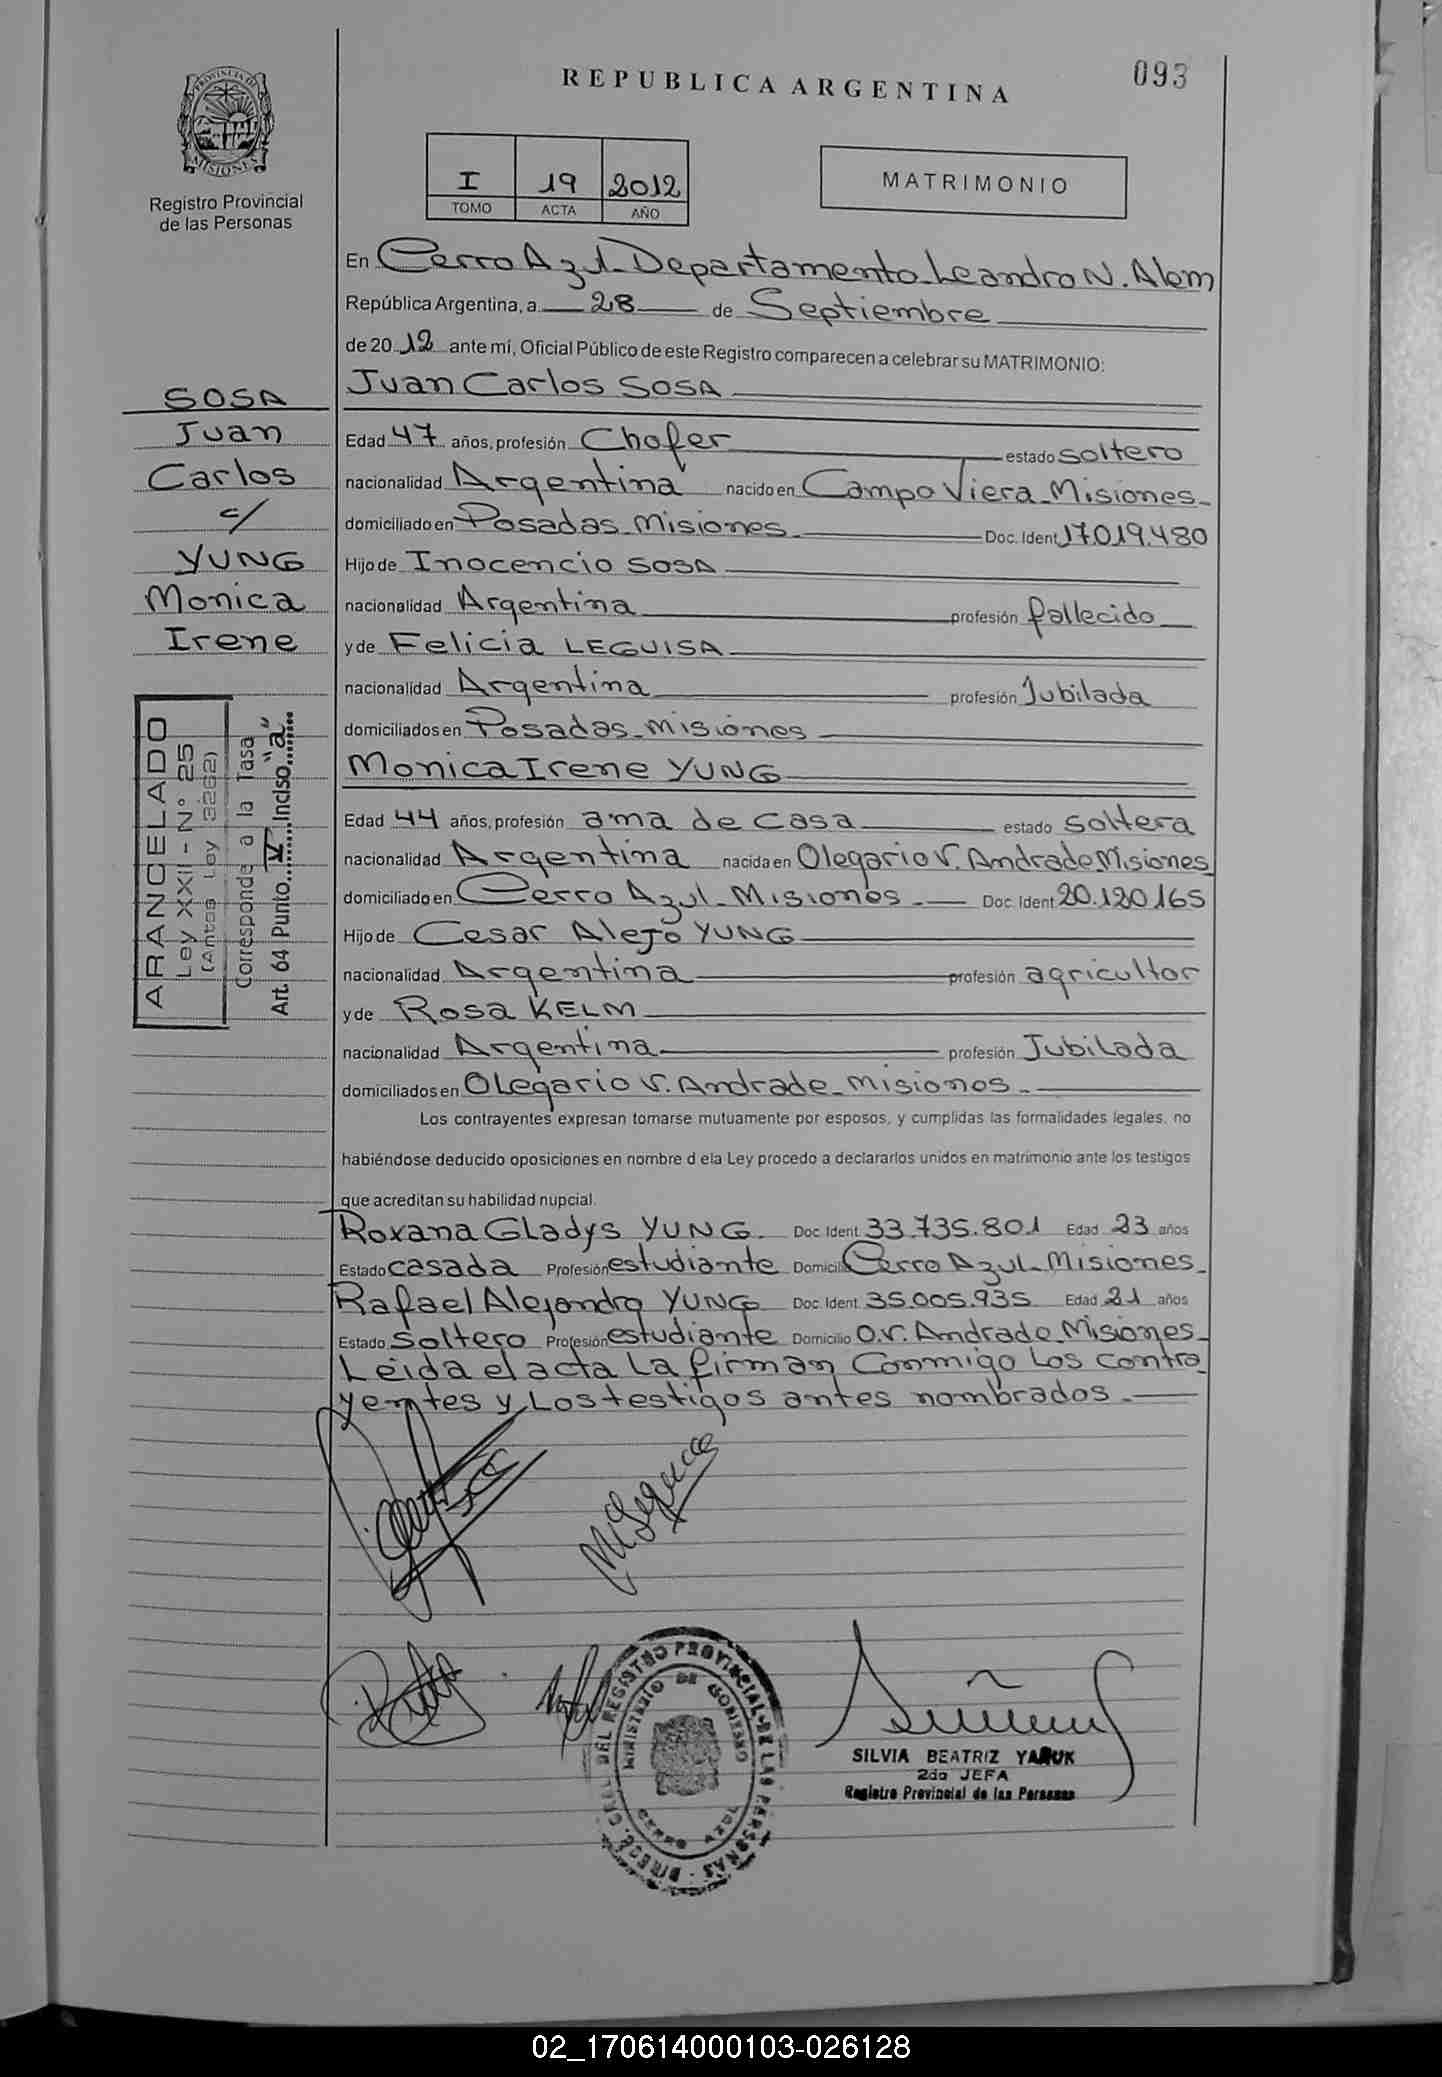 093
REPUBLICA ARGENTINA
PROVINCIA DE MISIONES
Registro Provincial
de las Personas
I 19 2012
TOMO ACTA AÑO
MATRIMONIO
En Cerro Azul-Departamento-Leandro N. Alem
República Argentina, a 28 de Septiembre
de 2012 ante mí, Oficial Público de este Registro comparecen a celebrar su MATRIMONIO:
Juan Carlos SOSA
Edad 47 años, profesión Chofer estado soltero
nacionalidad Argentina nacido en Campo Viera-Misiones-
domiciliado en Posadas-Misiones Doc. Ident 17.019.480
Hijo de Inocencio SOSA
nacionalidad Argentina profesión fallecido
y de Felicia LEGUISA
nacionalidad Argentina profesión Jubilada
domiciliados en Posadas-Misiones
Monica Irene YUNG
Edad 44 años, profesión ama de casa estado soltera
nacionalidad Argentina nacida en Olegario V. Andrade Misiones
domiciliado en Cerro Azul-Misiones.- Doc. Ident 20.120.165
Hijo de Cesar Alejo YUNG
nacionalidad Argentina profesión agricultor
y de Rosa KELM
nacionalidad Argentina profesión Jubilada
domiciliados en Olegario V. Andrade-Misiones.-
Los contrayentes expresan tomarse mutuamente por esposos, y cumplidas las formalidades legales, no
habiéndose deducido oposiciones en nombre d ela Ley procedo a declararlos unidos en matrimonio ante los testigos
que acreditan su habilidad nupcial.
Roxana Gladys YUNG. Doc. Ident. 33.735.801 Edad 23 años
Estado casada Profesión estudiante Domicilio Cerro Azul-Misiones-
Rafael Alejandro YUNG Doc. Ident. 35.005.935 Edad 21 años
Estado Soltero Profesión estudiante Domicilio O.V. Andrade Misiones-
Leida el acta la firman Conmigo los contra
yentes y Los testigos antes nombrados.-
SOSA
Juan
Carlos
c/
YUNG
Monica
Irene
ARANCELADO
Ley XXII - N° 25
(Antes Ley 3262)
Corresponde a la Tasa
Art. 64 Punto V Inciso "a"
DIRECC. GRAL. DEL REGISTRO PROVINCIAL DE LAS PERSONAS
MINISTERIO DE GOBIERNO
CERRO AZUL
SILVIA BEATRIZ YAÑUK
2da JEFA
Registro Provincial de las Personas
02_170614000103-026128